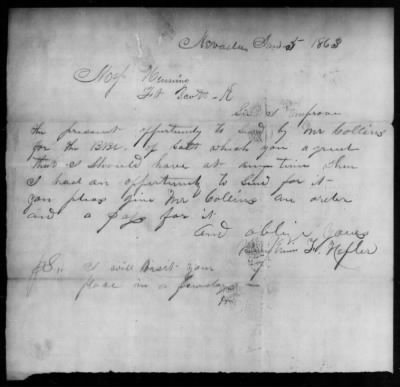 Nevada Jan 5 1863
Maj Henning
Ft Scott - K
Sir I improve
the present opportunity to send by Mr Collins
for the Bbl. of Salt which you agreed
that I should have at any time when
I had an opportunity to send for it
you please give Mr Collins an order
and a pass for it
and oblige yours
H. Hefler
PS,, I will visit your
place in a few days